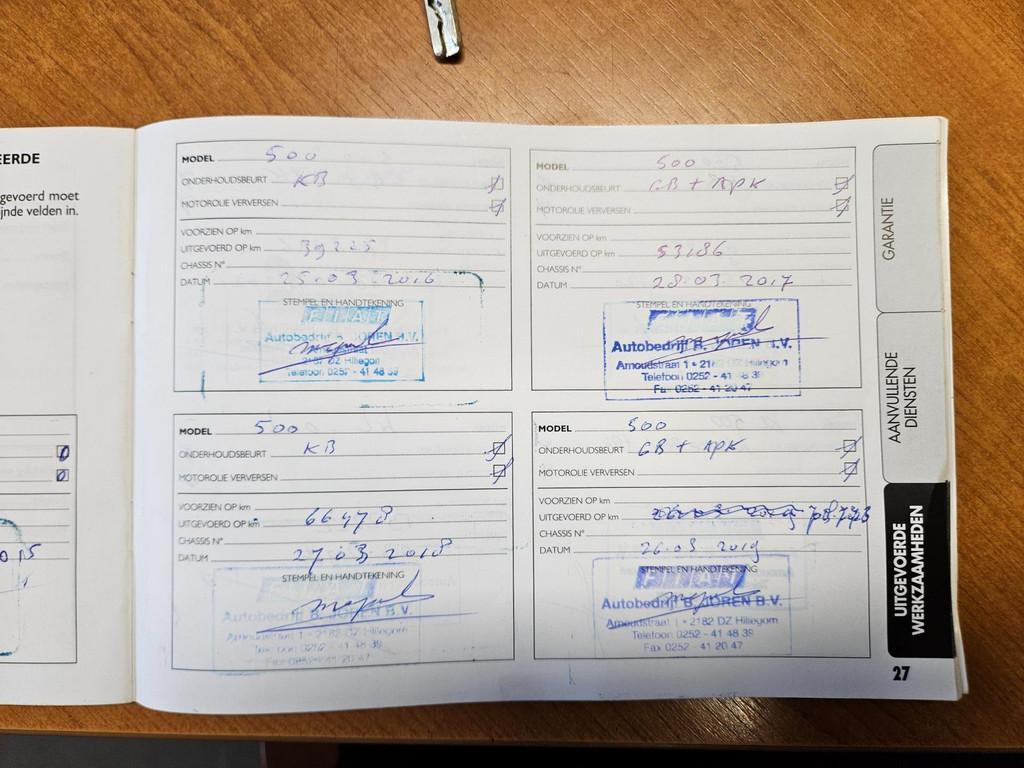 EERDE
gevoerd moet
jnde velden in.
MODEL 500
ONDERHOUDSBEURT KB
MOTOROLIE VERVERSEN
VOORZIEN OP km
UITGEVOERD OP km 39225
CHASSIS N°
DATUM 25.03.2016
STEMPEL EN HANDTEKENING
FIAT
Autobedrijf B. JOREN B.V.
2182 DZ Hillegom
Telefoon 0252 - 41 48 39
MODEL 500
ONDERHOUDSBEURT GB + APK
MOTOROLIE VERVERSEN
VOORZIEN OP km
UITGEVOERD OP km 53186
CHASSIS N°
DATUM 28.03.2017
STEMPEL EN HANDTEKENING
Autobedrijf B. JOREN B.V.
Arnoudstraat 1 • 2182 DZ Hillegom
Telefoon 0252 - 41 48 39
Fax 0252 - 41 20 47
MODEL 500
ONDERHOUDSBEURT KB
MOTOROLIE VERVERSEN
VOORZIEN OP km
UITGEVOERD OP km 66478
CHASSIS N°
DATUM 27.03.2018
STEMPEL EN HANDTEKENING
FIAT
Autobedrijf B. JOREN B.V.
Arnoudstraat 1 • 2182 DZ Hillegom
Telefoon 0252 - 41 48 39
Fax 0252 - 41 20 47
MODEL 500
ONDERHOUDSBEURT GB + APK
MOTOROLIE VERVERSEN
VOORZIEN OP km
UITGEVOERD OP km
CHASSIS N°
DATUM 26.03.2019
STEMPEL EN HANDTEKENING
FIAT
Autobedrijf B. JOREN B.V.
Arnoudstraat 1 • 2182 DZ Hillegom
Telefoon 0252 - 41 48 39
Fax 0252 - 41 20 47
GARANTIE
AANVULLENDE
DIENSTEN
UITGEVOERDE
WERKZAAMHEDEN
27